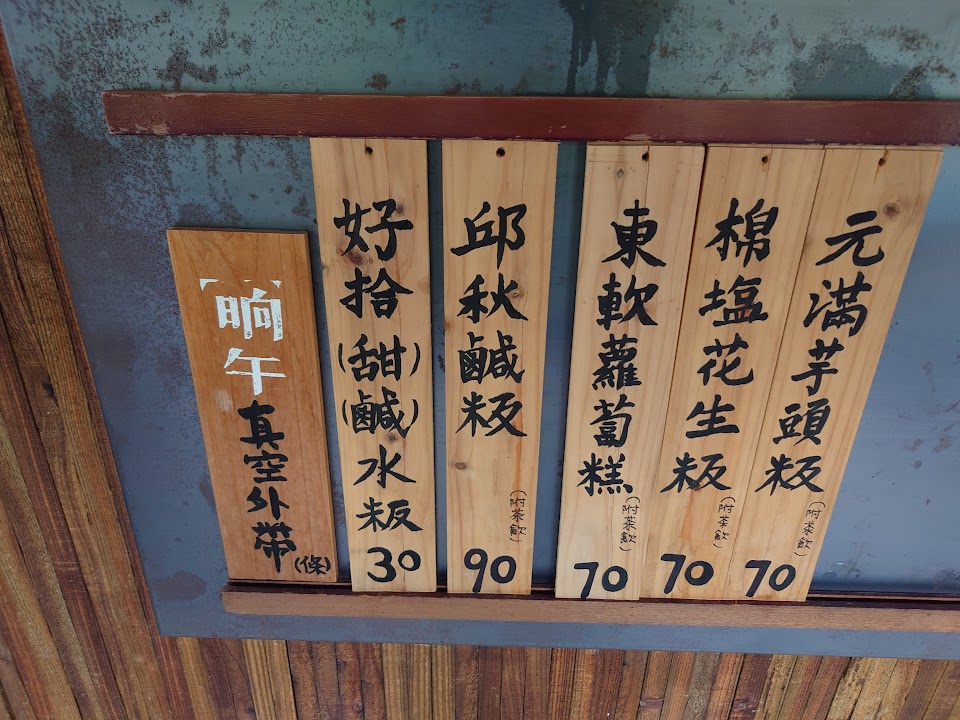 元滿芋頭粄
(附茶飲)
70
棉塩花生粄
(附茶飲)
70
東軟蘿蔔糕
(附茶飲)
70
邱秋鹹粄
(附茶飲)
90
好拾(甜)(鹹)水粄
30
晌午
真空外帶(條)